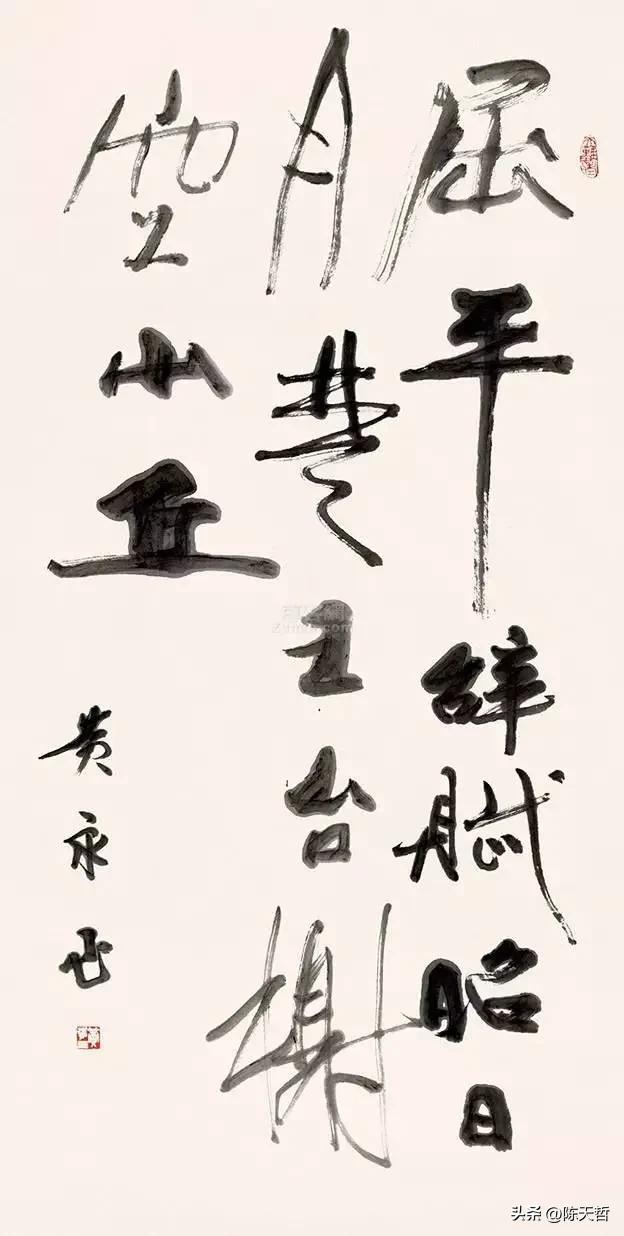 屈平辞赋昭日
月楚王台榭
空山丘
黄永
头条 @陈天哲